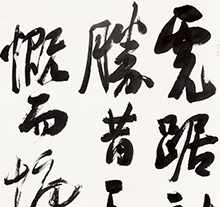 虎踞
勝昔
慨而慷